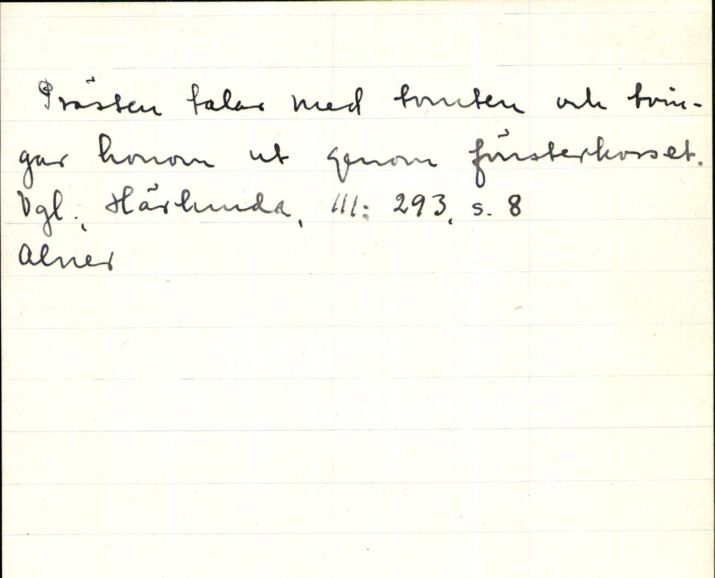 Prästen talar med tomten och tvin-
gar honom ut genom fönsterkorset.
Vgl., Härlunda, III: 293, s. 8
Alner